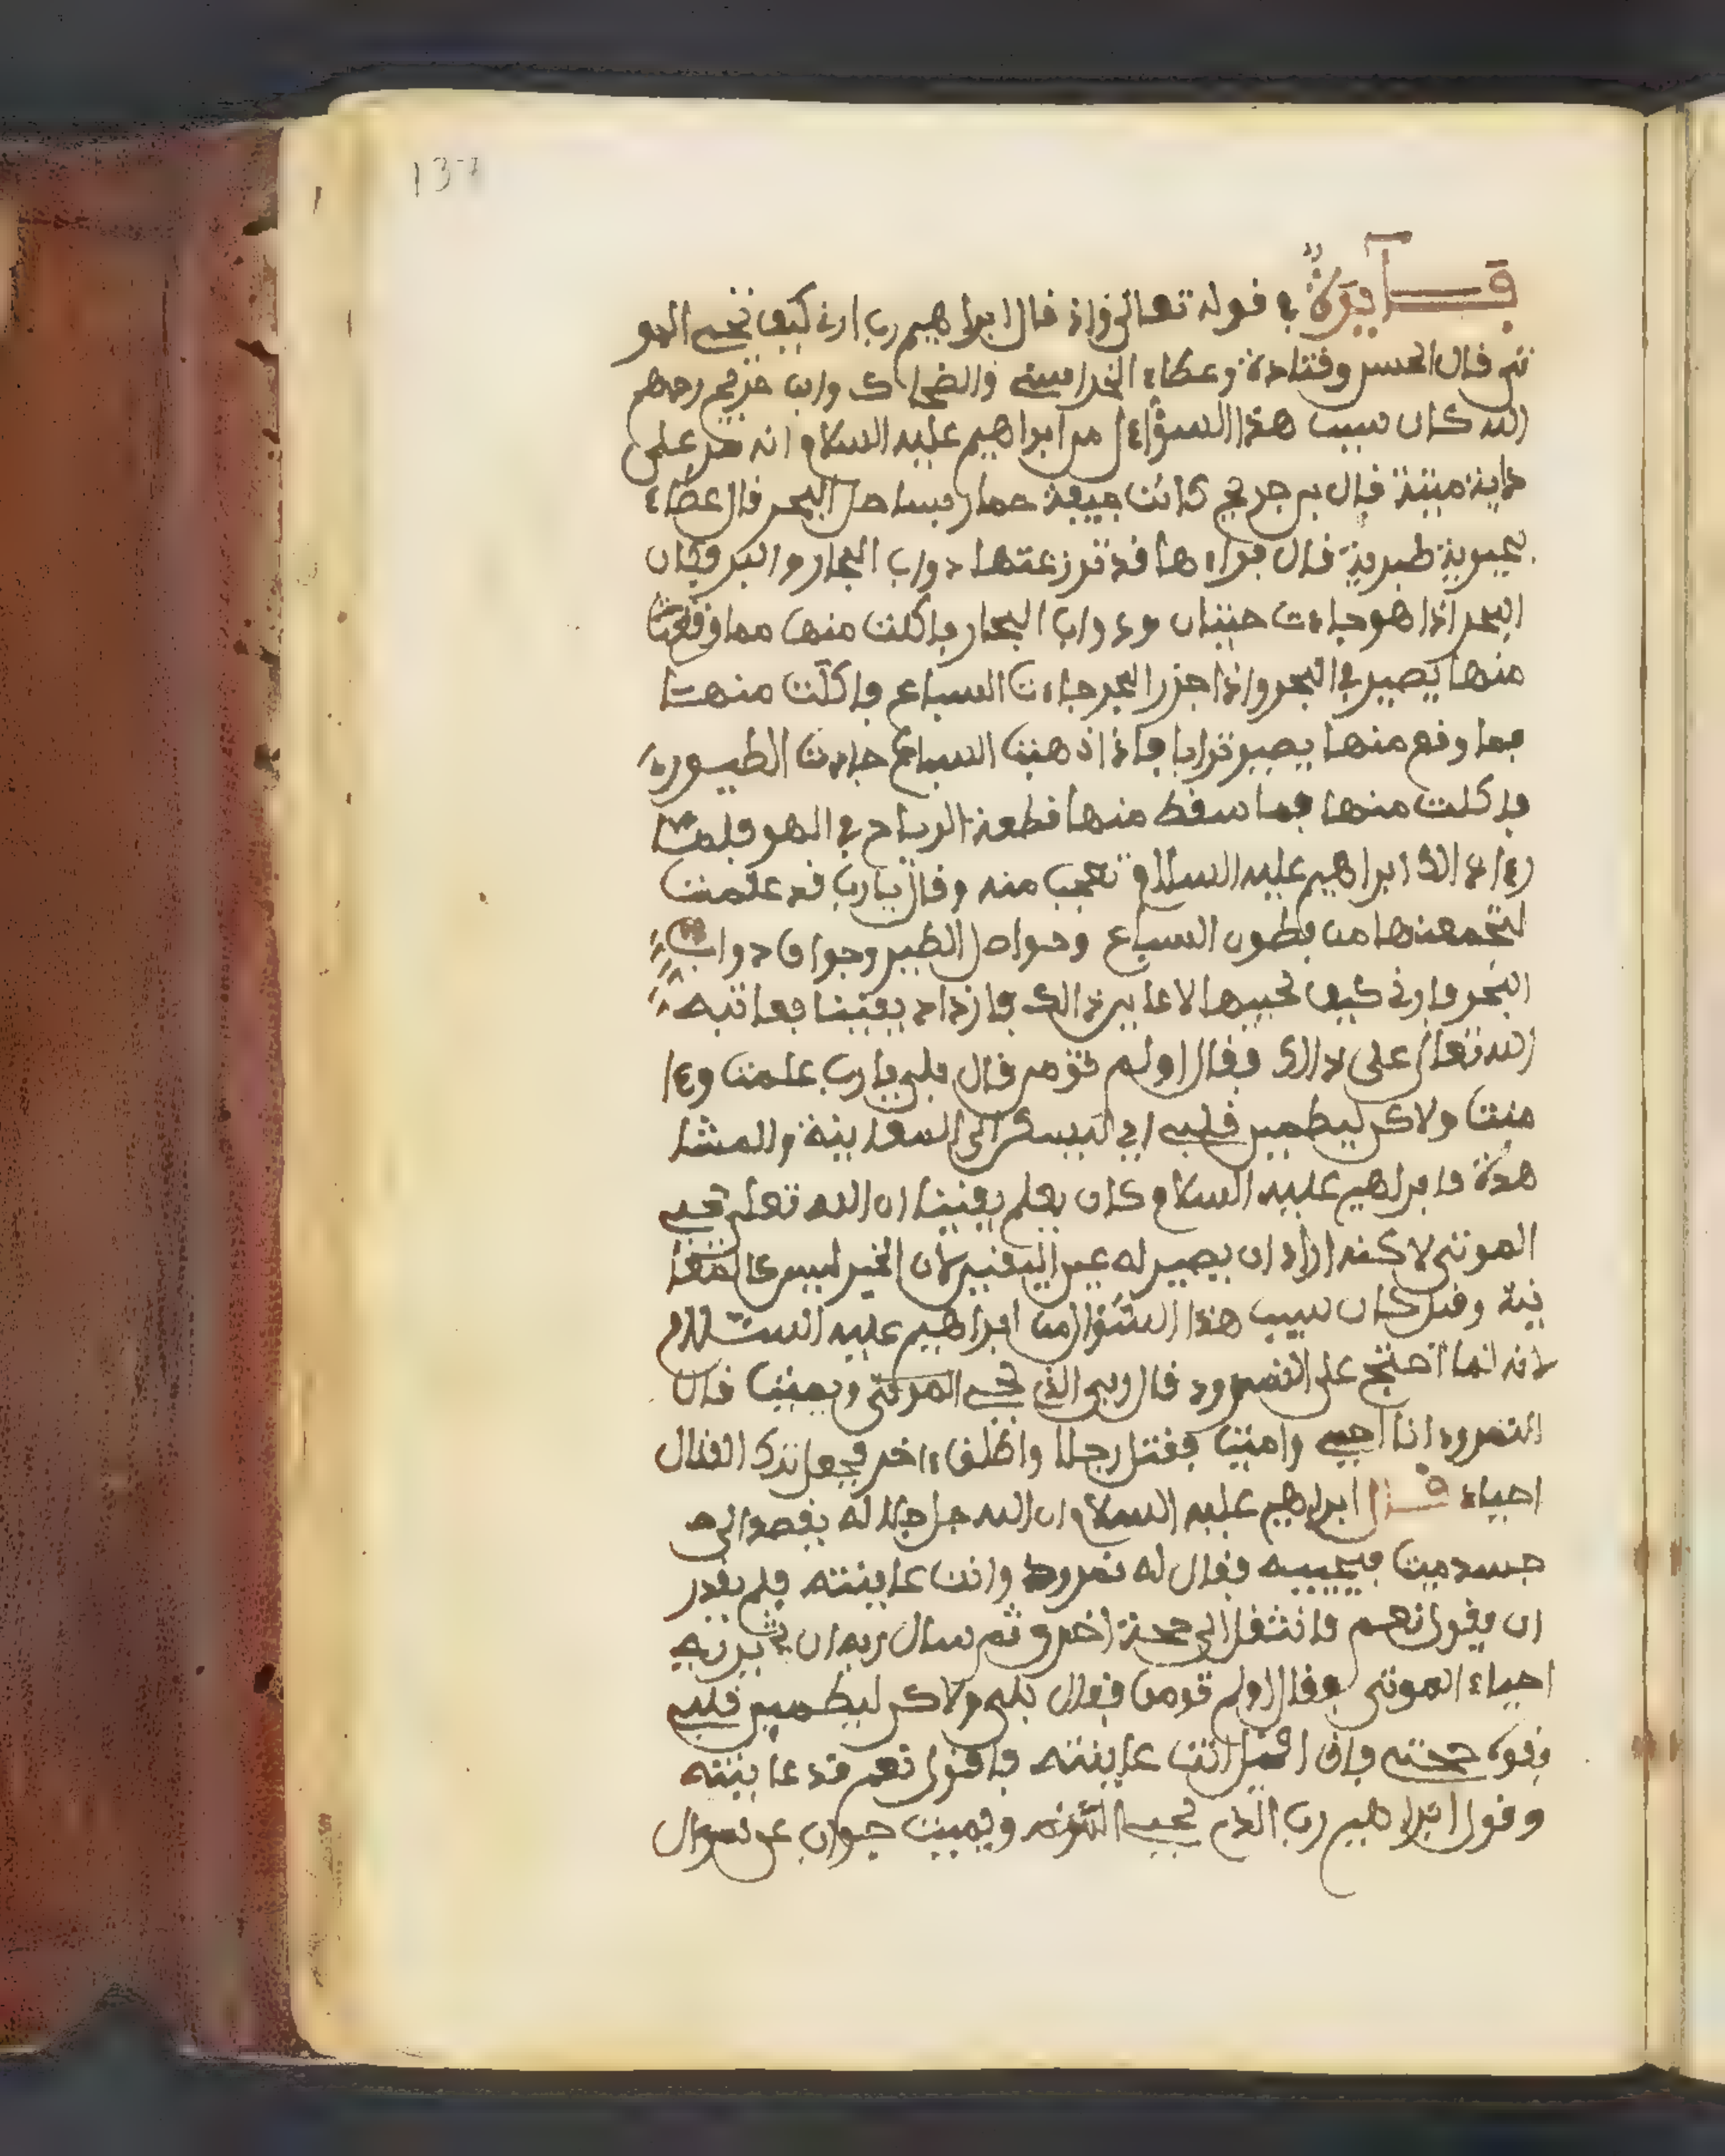 137
فايدة في قوله تعالى واذ قال ابراهيم رب ارني كيف تحي المو
تى قال الحسن وقتادة وعطاء الخراسني والضحاك وابن جريج رحمهم
الله كان سبب هذا السؤال من ابراهيم عليه السلام انه مر على
دابة ميتة قال بن جريج كانت جيفة حمار بساحل البحر قال عطاء
بحيرية طبرية قال فراءها قد توزعتها دواب البحار والبر فكان
البحر اذا هو جاءت حيتان ودواب البحار فاكلت منها مما وقعت
منها يصير في البحر واذا جزر البحر جاءت السباع فاكلت منها
فما وقع منها يصير ترابا فاذا ذهبت السباع جاءت الطيور
فاكلت منها فما سقط منها قطعة الرياح في الهو فلما
رءا ذالك ابراهيم عليه السلام تعجب منه وقال يا رب قد علمت
لتجمعنها من بطون السباع وحواصل الطير وجواف دواب
البحر فارني كيف تحييها لاعاين ذالك فازداد يقينا فعاتبه
الله تعالى على ذالك فقال اولم تومن قال بلى يا رب علمت وءا
منت ولاكن ليطمين قلبي اي ليسكن الى المعاينة والمشا
هدة فابراهيم عليه السلام كان يعلم يقينا ان الله تعلى يحي
الموتى لاكنه اراد ان يصير له عين اليقين لان الخبر ليس كالمعا
ينة وقيل كان سبب هذا السؤال من ابراهيم عليه السلام
لانه لما احتج على النمرود قال ربي الذي يحي الموتى ويميت قال
النمرود انا احيي واميت فقتل رجلا واطلق ءاخر فجعل ترك القتال
احياء قال ابراهيم عليه السلام ان الله جل جلاله يقصد الى
جسد ميت فيحييه فقال له نمرود وانت عاينته فلم يقدر
ان يقول نعم فانتقل الى حجة اخرى ثم سال ربه ان يريه
احياء الموتى فقال اولم تومن فقال بلى ولاكن ليطمين قلبي
بقوة حجتي فان اقيل انت عاينته فاقول نعم قد عاينته
وقول ابراهيم رب الذي يحي الموتى ويميت جواب عن سوال